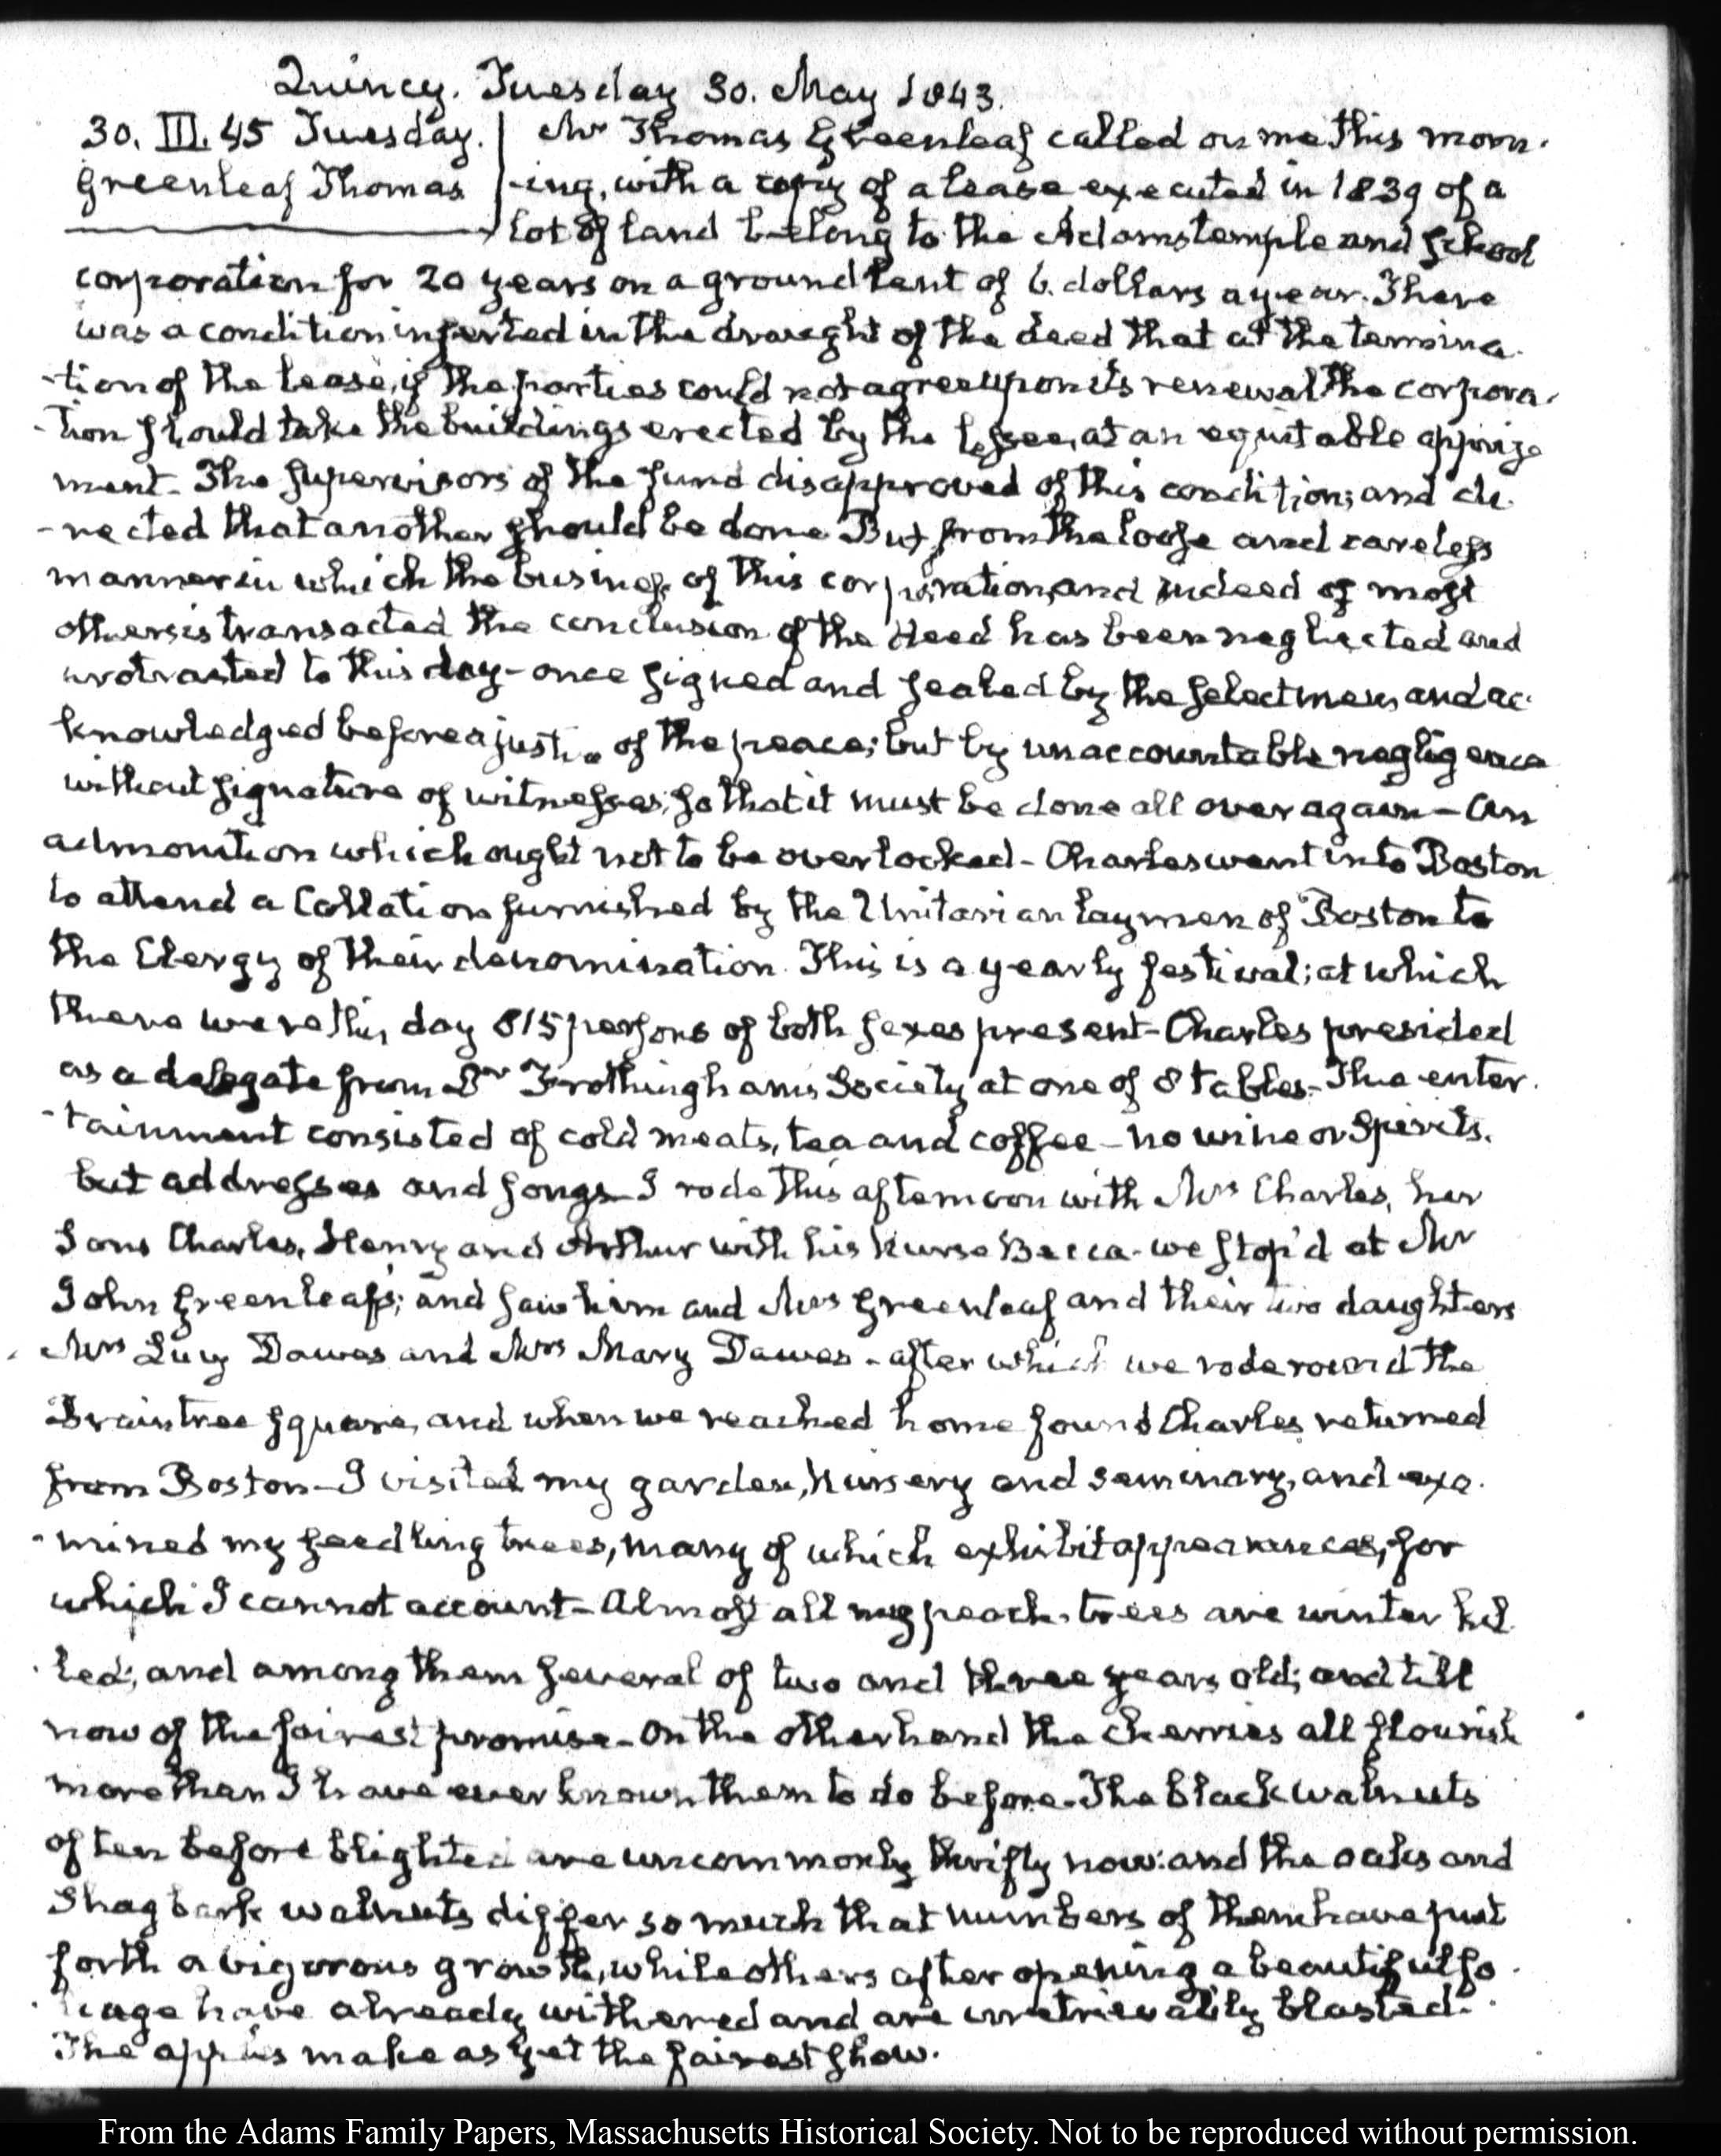 Quincy. Tuesday 30. May 1843.
30. III. 45 Tuesday. Mr Thomas Greenleaf called on me this morn-
Greenleaf Thomas -ing, with a copy of a lease executed in 1839 of a
lot of land belong to the Adams temple and School
corporation for 20 years on a ground rent of 6. dollars a year. There
was a condition inserted in the draught of the deed that at the termina-
-tion of the lease, if the parties could not agree upon its renewal the corpora-
-tion should take the buildings erected by the lessee, at an equitable apprize
ment. The supervisors of the fund disapproved of this condition; and di-
-rected that another should be done But from the loose and careless
manner in which the business of this corporation, and indeed of most
others is transacted the conclusion of the deed has been neglected and
protracted to this day - once signed and sealed by the selectmen and ac-
knowledged before a justice of the peace; but by unaccountable negligence
without signature of witnesses; so that it must be done all over again - An
admonition which ought not to be overlooked - Charles went into Boston
to attend a Collation furnished by the Unitarian laymen of Boston to
the Clergy of their denomination. This is a yearly festival; at which
there were this day 815 persons of both sexes present - Charles presided
as a delegate from Dr Frothingham's Society at one of 8 tables - The enter-
-tainment consisted of cold meats, tea and coffee - no wine or Spirits.
but addresses and songs - I rode this afternoon with Mrs Charles, her
Sons Charles, Henry and Arthur with his Nurse Becca - we stop'd at Mr
John Greenleaf's; and saw him and Mrs Greenleaf and their two daughters
Mrs Lucy Dawes and Mrs Mary Dawes - after which we rode round the
Braintree square, and when we reached home found Charles returned
from Boston - I visited my garden, Nursery and seminary, and exa-
-mined my seedling trees, many of which exhibit appearances, for
which I cannot account - Almost all my peach-trees are winter kil-
-led; and among them several of two and three years old; and till
now of the fairest promise - On the other hand the cherries all flourish
more than I have ever known them to do before - The black walnuts
often before blighted are uncommonly thrifty now: and the oaks and
Shagbark walnuts differ so much that numbers of them have put
forth a vigorous growth, while others after opening a beautiful fo-
-liage have already withered and are irretrievably blasted.
The apples make as yet the fairest show.
From the Adams Family Papers, Massachusetts Historical Society. Not to be reproduced without permission.